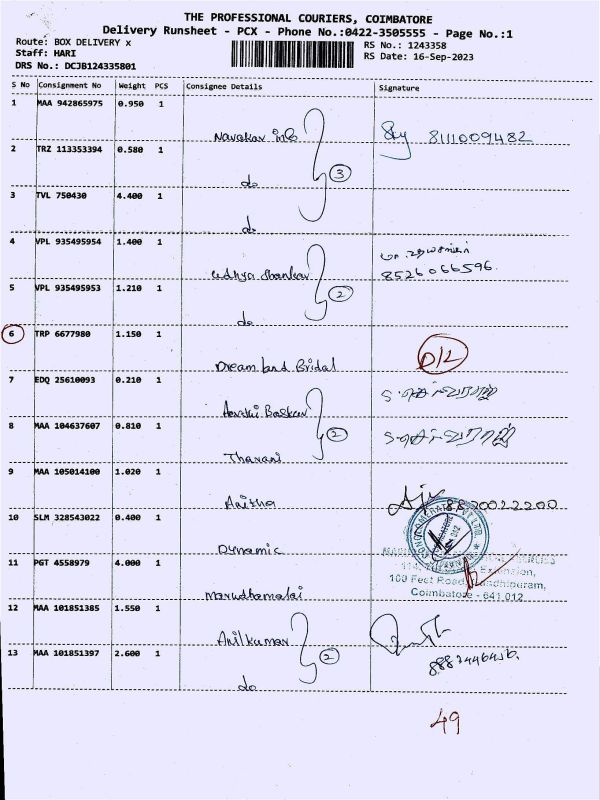 THE PROFESSIONAL COURIERS, COIMBATORE
Delivery Runsheet - PCX - Phone No.:0422-3505555 - Page No.:1
Route: BOX DELIVERY x
Staff: HARI
DRS No.: DCJB124335801
RS No.: 1243358
RS Date: 16-Sep-2023
S No Consignment No Weight PCS Consignee Details Signature
1 MAA 942865975 0.950 1
Navakar
8111009482
2 TRZ 113353394 0.580 1
do
3
3 TVL 750430 4.400 1
do
4 VPL 935495954 1.400 1
Udhya Shankar
8526066596
5 VPL 935495953 1.210 1
do
2
6 TRP 6677980 1.150 1
Dream land Bridal
D/L
7 EDQ 25610093 0.210 1
Baskar
8 MAA 104637607 0.810 1
Tharani
2
9 MAA 105014100 1.020 1
Anitha
8820022200
10 SLM 328543022 0.400 1
Dynamic
11 PGT 4558979 4.000 1
Marudhamalai
100 Feet Road, Gandhipuram,
Coimbatore - 641 012
12 MAA 101851385 1.550 1
Anilkumar
13 MAA 101851397 2.600 1
do
2
49